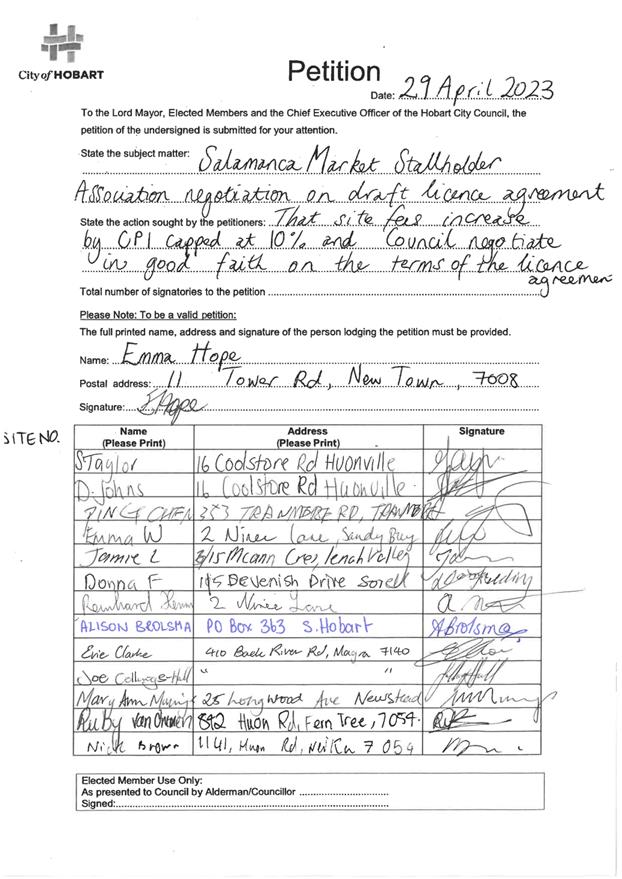 City of HOBART
Petition
Date: 29 April 2023
To the Lord Mayor, Elected Members and the Chief Executive Officer of the Hobart City Council, the
petition of the undersigned is submitted for your attention.
State the subject matter: Salamanca Market Stallholder
Association negotiation on draft licence agreement
State the action sought by the petitioners: That site fees increase
by CPI capped at 10% and Council negotiate
in good faith on the terms of the licence
agreemen
Total number of signatories to the petition
Please Note: To be a valid petition:
The full printed name, address and signature of the person lodging the petition must be provided.
Name: Emma Hope
Postal address: 11 Tower Rd, New Town, 7008
Signature: EHope
SITE NO.
Name Address Signature
(Please Print) (Please Print)
S Taylor 16 Coolstore Rd Huonville
D. Johns 16 Coolstore Rd Huonville
PING CHEN 353 TRANMERE RD, TRANMERE
Emma W 2 Niree Lane, Sandy Bay
Jammie L Mcann Cres, Lenah Valley
Donna F Devenish Drive Sorell
Reinhard 2 Niree Lane
ALISON BROLSMA PO Box 363 S. Hobart ABrolsma
Evie Clarke 410 Back River Rd, Magra 7140
Joe Collings-Hall " "
Mary Ann 25 Longwood Ave Newstead
Ruby van 892 Huon Rd, Fern Tree, 7054.
Nick Brown 1141, Huon Rd, Neika 7054
Elected Member Use Only:
As presented to Council by Alderman/Councillor
Signed: